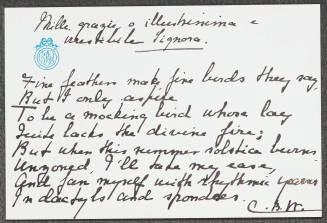 Mille grazie, o illustrissima e
venerabile Signora.
Fine feathers make fine birds they say,
But I only aspire
To be a mocking bird whose lay
Quite lacks the divine fire;
But when this summer solstice burns
I'll take me ease,
And fan myself with rhythmic
In dactyls and spondees.
C.B.W.